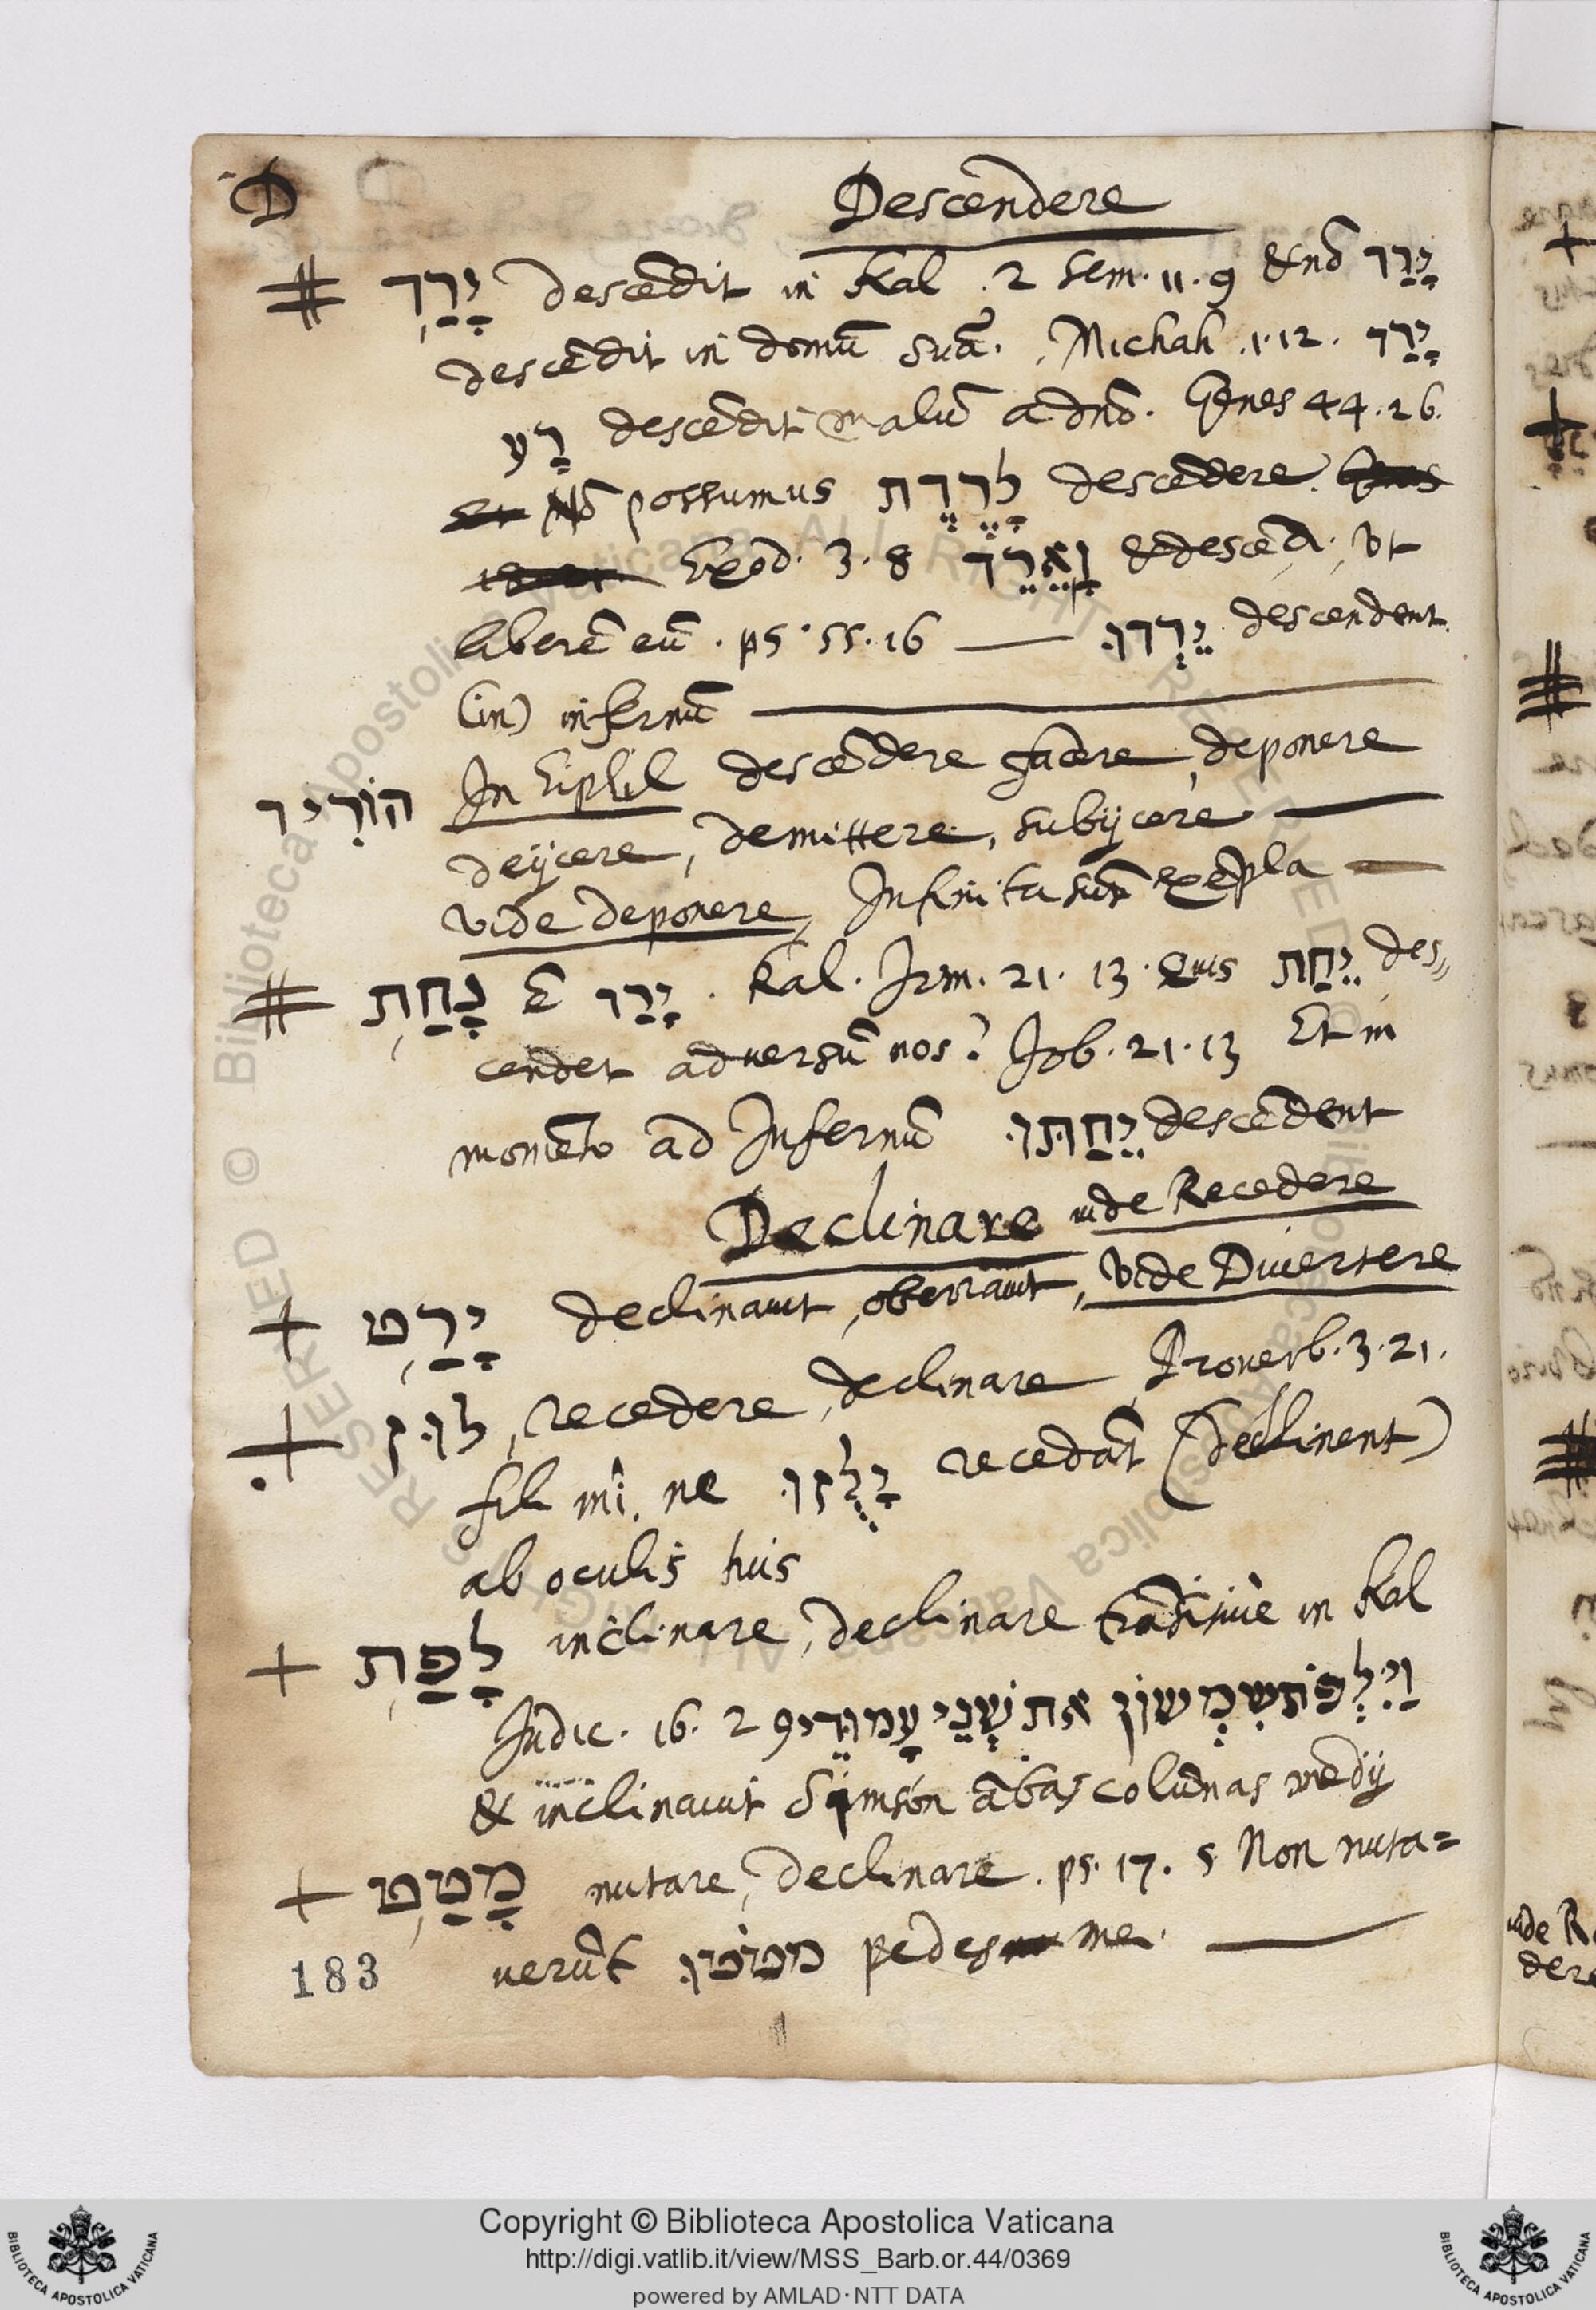 D Descendere
יָרַד descēdit in Kal . 2 Sem. 11. 9 & nō יָרַד
descēdit in domū suā. Michah .1.12. יָרַד
רָע descēdit malū a dnō. Genes 44. 26.
Et Nō possumus לָרֶדֶת descēdere.
Exod. 3. 8 וָאֵרֵד & descēdi, vt
liberē eū. ps. 55. 16 — יֵרְדוּ descendent.
(in) infernū
הוֹרִיד In Hiphil descēdere facere, deponere
deijcere, demittere, subijcere
vide deponere, Infinita sunt exēpla
נָחַת יָרַד . Kal. Irm. 21. 13. Quis יֵחַת des„
cendet adversū nos? Job. 21. 13 Et in
momēto ad Infernū יֵחַתּוּ descēdent
Declinare vide Recedere
יָרַט declinavit, oberravit, Vide Divertere
לוּז, recedere, declinare Proverb. 3. 21.
fili mi, ne יָלֻזוּ recedāt (declinent)
ab oculis tuis
לָפַת inclinare, declinare in Kal
Judic. 16. 29 וַיִּלְפֹּת שִׁמְשׁוֹן את שְׁנֵי עָמוּדֵי
& inclinavit Simson ābas colūnas medij
מָטַט nutare, declinare. ps. 17. 5 Non nuta=
verūt מטוטו pedes me.
183
Copyright © Biblioteca Apostolica Vaticana
http://digi.vatlib.it/view/MSS_Barb.or.44/0369
powered by AMLAD·NTT DATA